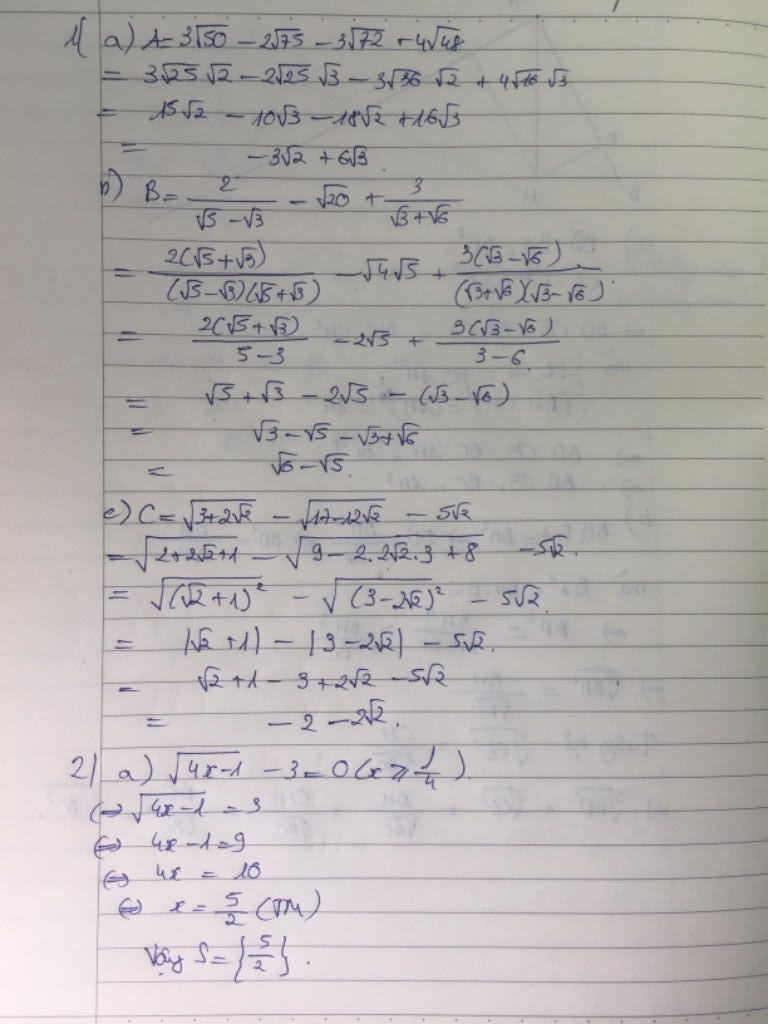 1( a) A = 3√50 − 2√75 − 3√72 + 4√48
= 3√25 √2 − 2√25 √3 − 3√36 √2 + 4√16 √3
= 15√2 − 10√3 − 18√2 + 16√3
= −3√2 + 6√3
b) B = 2/(√5 − √3) − √20 + 3/(√3 + √6)
= 2(√5 + √3)/((√5 − √3)(√5 + √3)) − √4√5 + 3(√3 − √6)/((√3 + √6)(√3 − √6))
= 2(√5 + √3)/(5 − 3) − 2√5 + 3(√3 − √6)/(3 − 6)
= √5 + √3 − 2√5 − (√3 − √6)
= √3 − √5 − √3 + √6
= √6 − √5.
c) C = √(3 + 2√2) − √(17 − 12√2) − 5√2
= √(2 + 2√2 + 1) − √(9 − 2.2√2.3 + 8) − 5√2.
= √((√2 + 1)²) − √((3 − 2√2)²) − 5√2.
= |√2 + 1| − |3 − 2√2| − 5√2.
= √2 + 1 − 3 + 2√2 − 5√2
= −2 − 2√2.
2) a) √(4x − 1) − 3 = 0 (x ⩾ 1/4).
⇔ √(4x − 1) = 3
⇔ 4x − 1 = 9
⇔ 4x = 10
⇔ x = 5/2 (TM)
Vậy S = {5/2}.